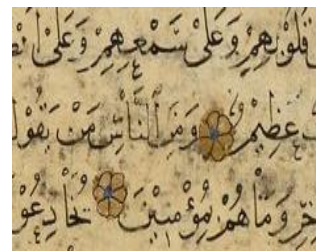 قُلُوبِهِمْ وَعَلَىٰ سَمْعِهِمْ وَعَلَىٰ
عَظِيمٌ وَمِنَ ٱلنَّاسِ مَنْ يَقُولُ
وَمَا هُمْ بِمُؤْمِنِينَ يُخَادِعُونَ